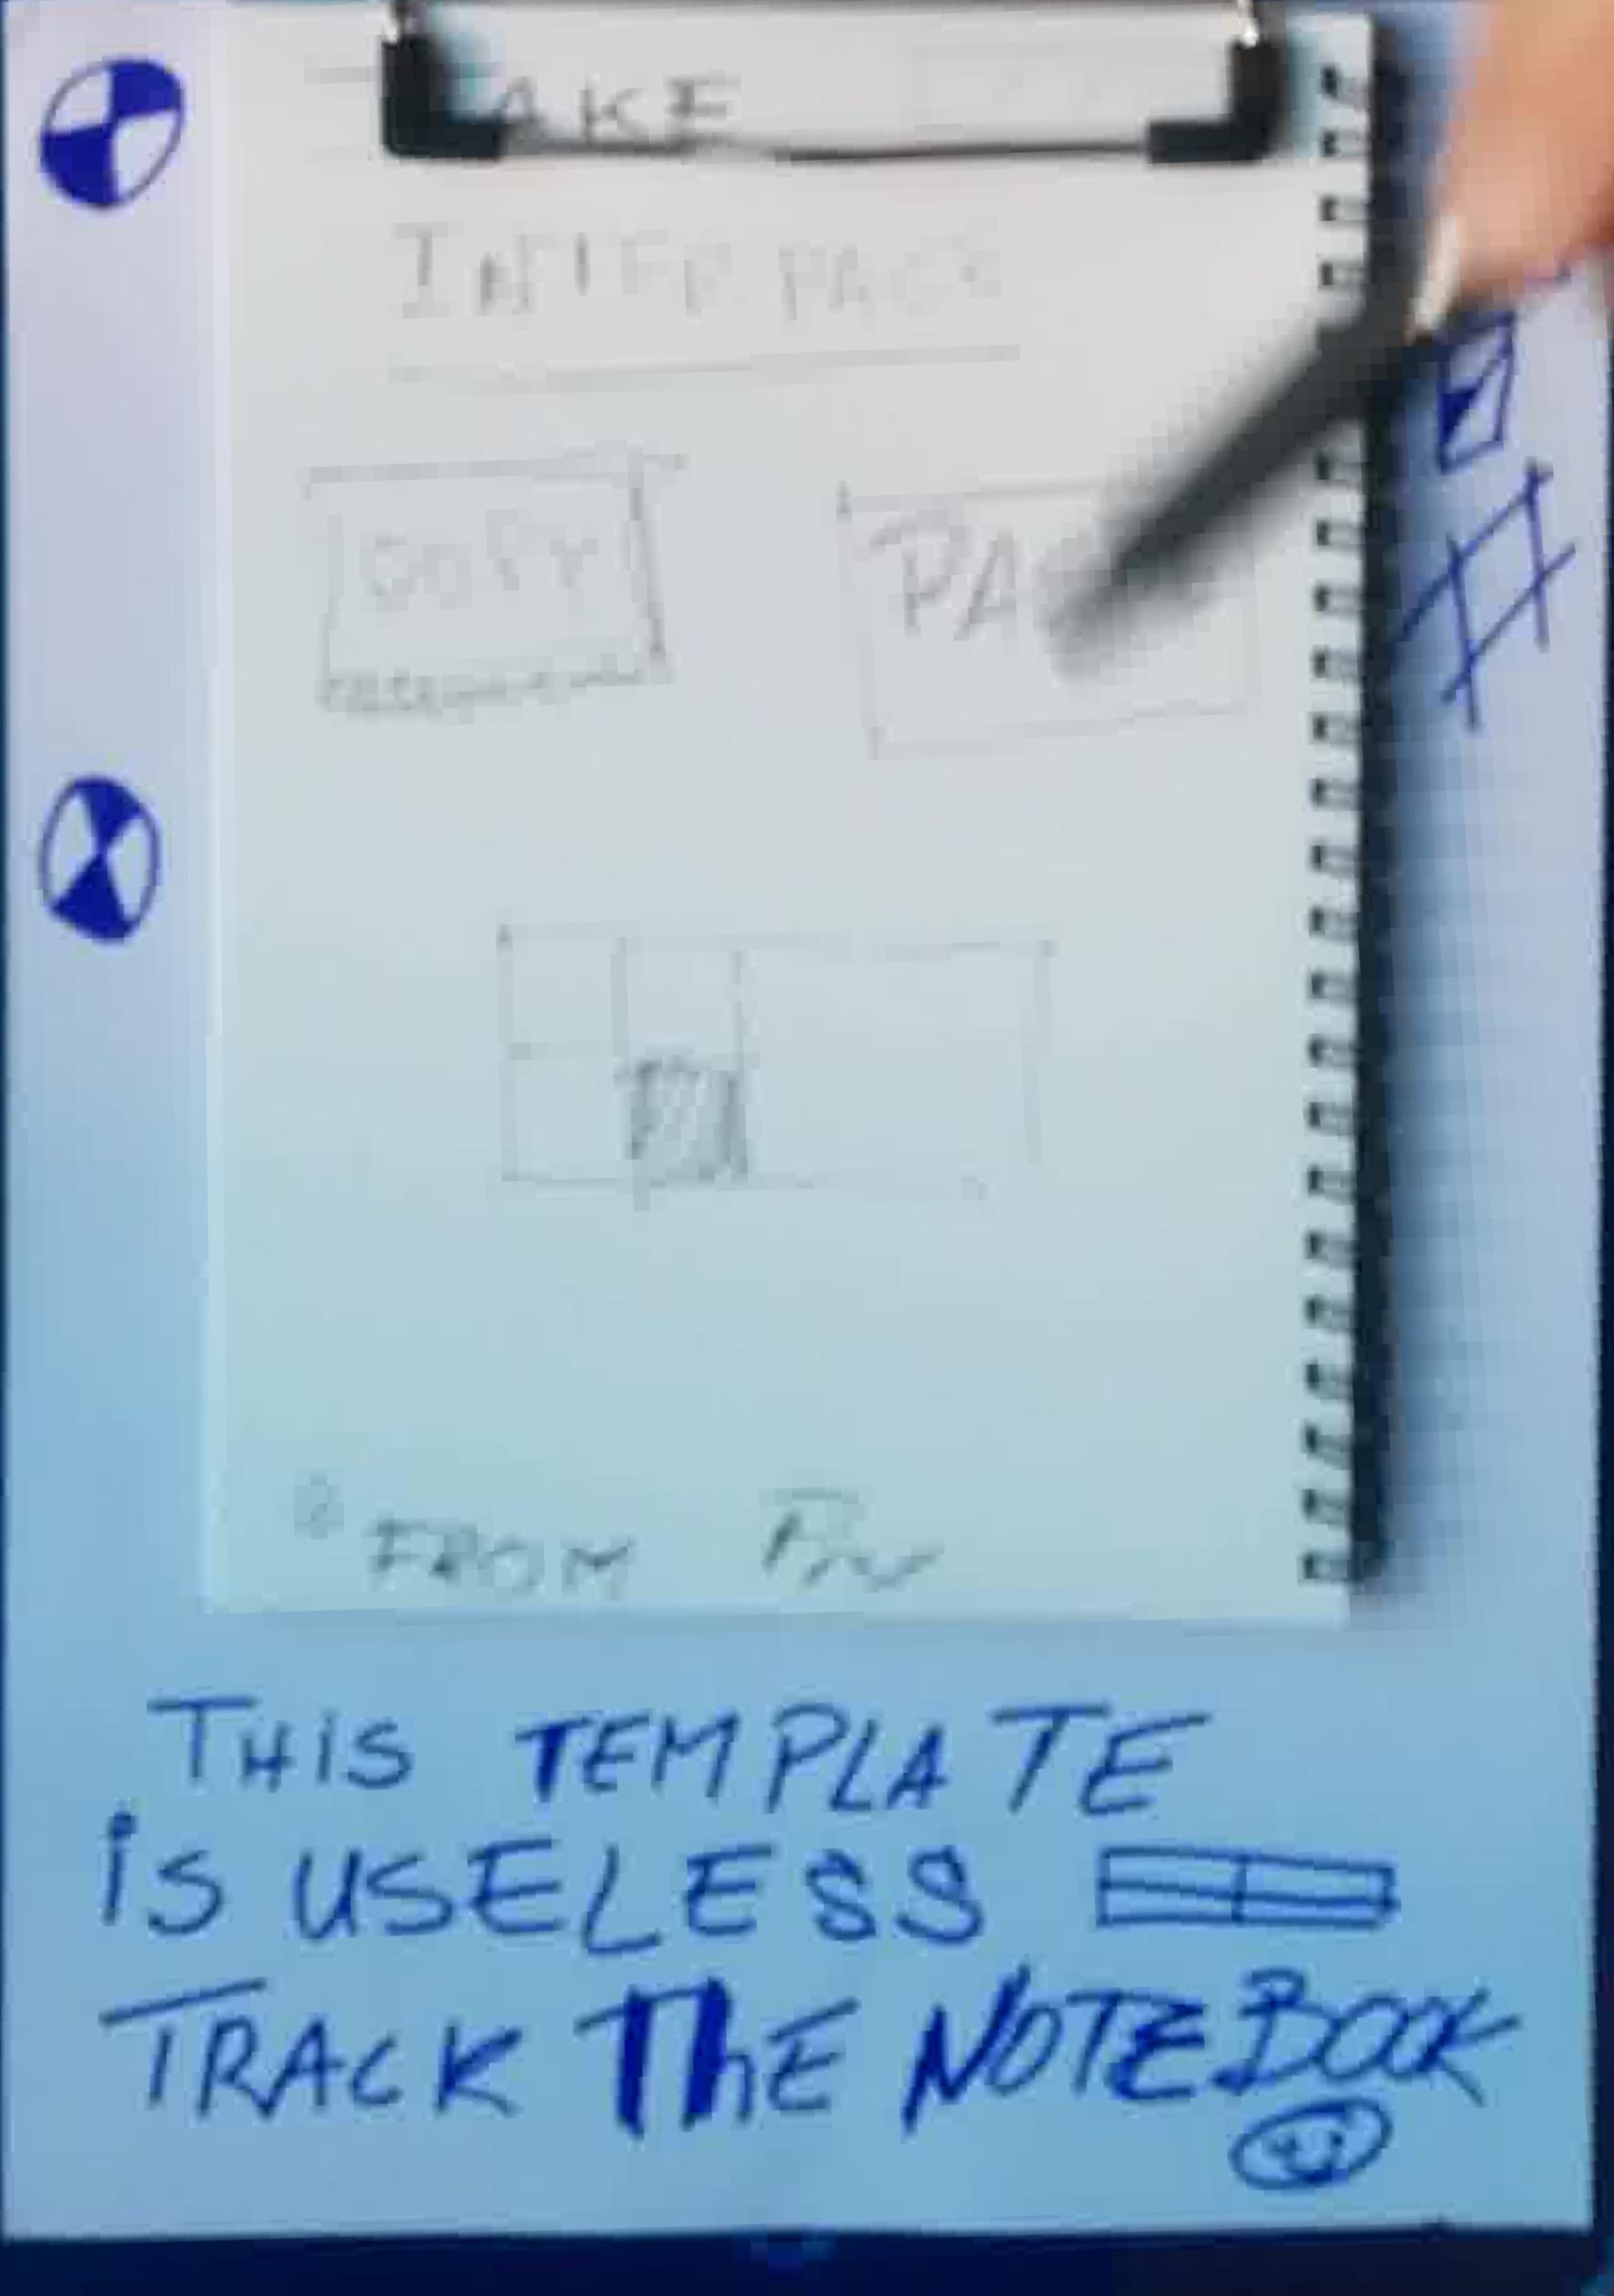 AKE
INTERPAGE
COPY
PA
FROM
THiS TEMPLATE
is USELESS
TRACK ThE NOTEBOOK